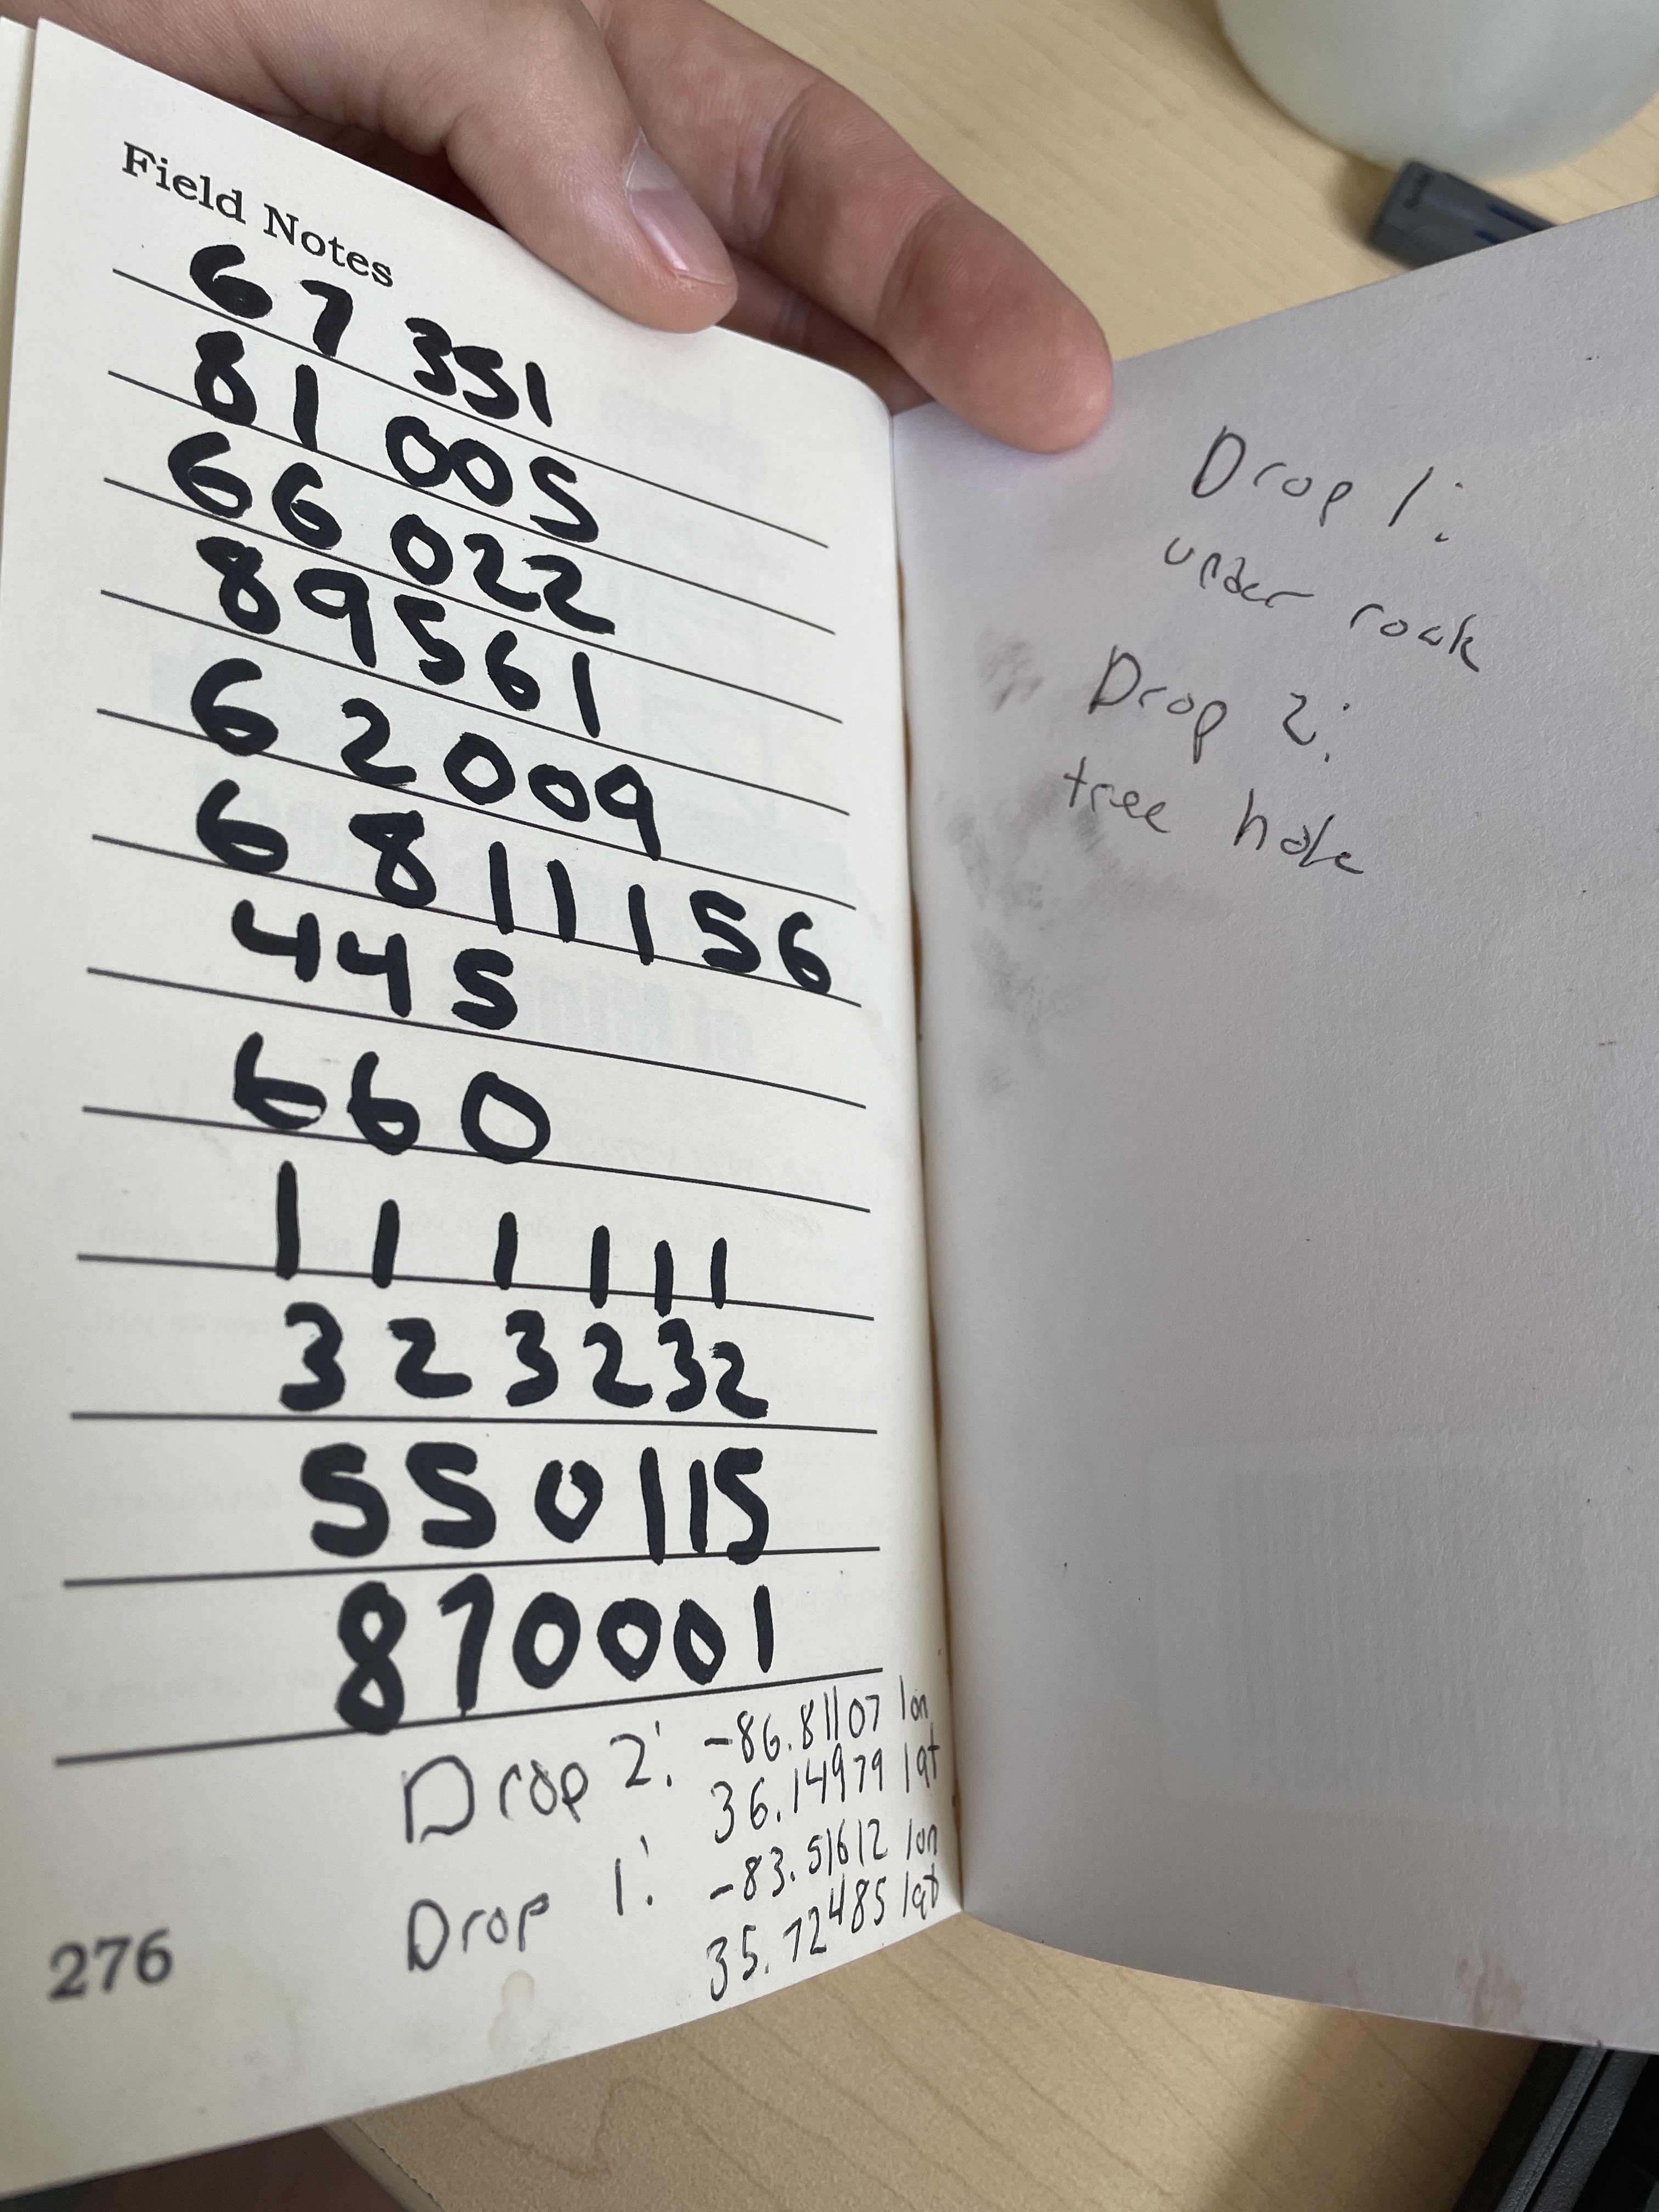 Field Notes
67 351
81 005
66 022
89561
6 2009
6 8 111 56
445
660
1 1 1 1 1 1
3 2 3 2 3 2
550115
870001
Drop 2: -86.81107 lon
36.14979 lat
Drop 1: -83.51612 lon
35.72485 lat
276
Drop 1:
under rock
Drop 2:
tree hole